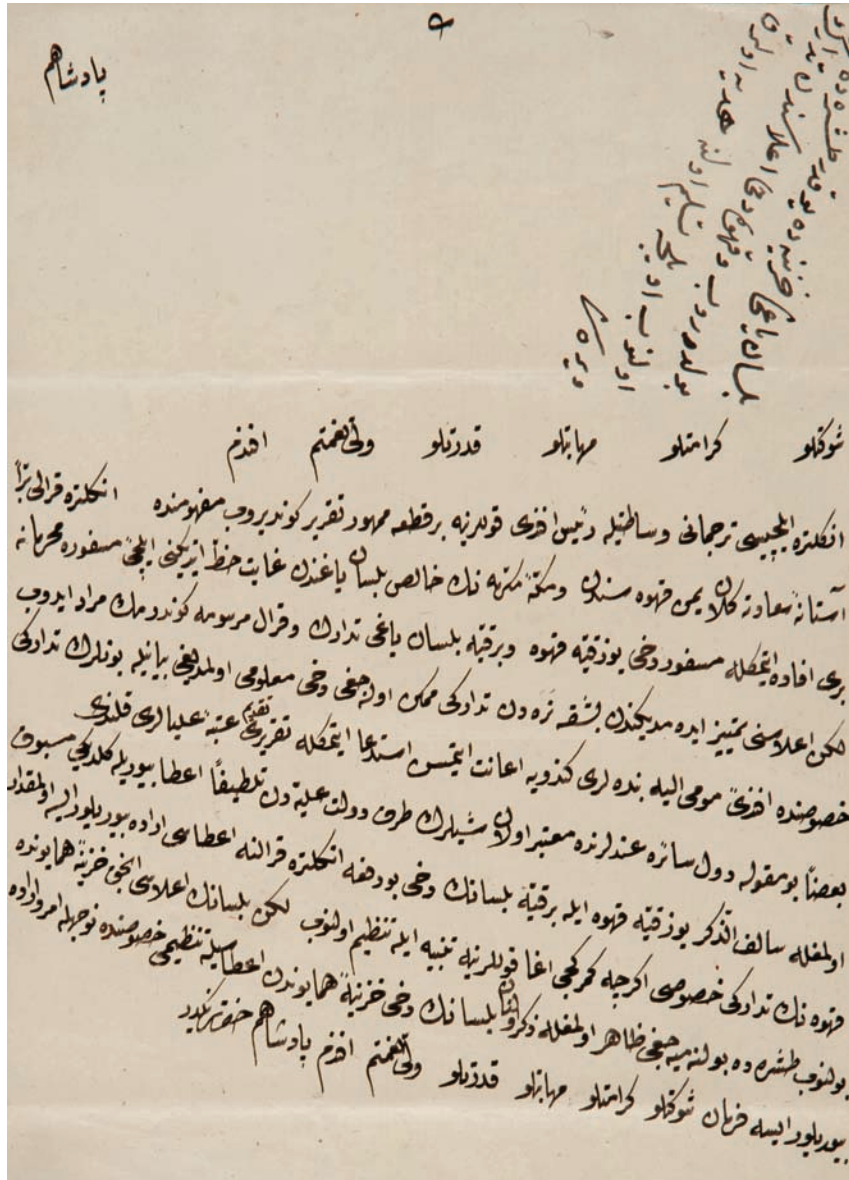 پادشاهم
بلسان یاغی خزینه ده یوقدر طشره ده
بولدیروب وقهوه دخی اعلاسندن
تسلیم اولنه هدیه اولمق
اولنوب
ویره سن
شوکتلو کرامتلو مهابتلو قدرتلو ولی نعمتم افندم
انکلتره ایلچیسی ترجمانی وساطتیله رئیس افندی قوللرینه بر قطعه ممهور تقریر کوندیروب مفهومنده انکلتره قرالی برًا
آستانهٔ سعادته کلان یمن قهوه سندن ومکهٔ مکرمه نك خالص بلسان یاغندن غایت حظ ایتدیکنی ایلچیٔ مسفوره محرمانه
بری افاده ایتمکله مسفور دخی یوز قیه قهوه وبر قیه بلسان یاغی تدارك وقرال مرسومه کوندرمك مراد ایدوب
لکن اعلاسنی تمییز ایده مدیکندن بشقه نره دن تدارکی ممکن اوله جغی دخی معلومی اولمدیغی بیانیله بونلرك تدارکی
خصوصنده افندیٔ مومی الیه بنده لری کندویه اعانت ایتمسن استدعا ایتمکله تقریری تقدیم عتبهٔ علیالری قلندی
بعضًا بو مقوله دول سائره عندلرنده معتبر اولان شیلرك طرف دولت علیه دن تلطیفًا اعطا بیوریله کلدیکی مسبوق
اولمغله سالف الذکر یوز قیه قهوه ایله بر قیه بلسانك دخی بو دفعه انکلتره قرالنه اعطاسی اراده بیوریلور ایسه اولمقدار
قهوه نك تدارکی خصوصی اکرچه کمرکجی اغا قوللرینه تنبیه ایله تنظیم اولنوب لکن بلسانك اعلاسی انجق خزینهٔ همایونده
بولنوب طشره ده بولنه میه جغی ظاهر اولمغله ذکر اولنان بلسانك دخی خزینهٔ همایوندن اعطاسیله تنظیمی خصوصنده نوجهله امر واراده
بیوریلور ایسه فرمان شوکتلو کرامتلو مهابتلو قدرتلو ولی نعمتم افندم پادشاهم حضرتلرینکدر